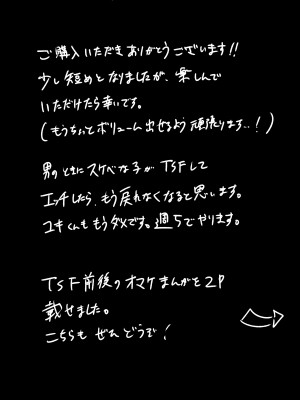 ご購入いただきありがとうございます!!
少し短めとなりましたが、楽しんで
いただけたら幸いです。
(もうちょっとボリューム出せるよう頑張ります..!)
男のときにスケベな子がTSFして
エッチしたら、もう戻れなくなると思います。
ユキくんももうダメです。週5でやります。
TSF前後のオマケまんがを2P
載せました。
こちらも ぜひどうぞ!